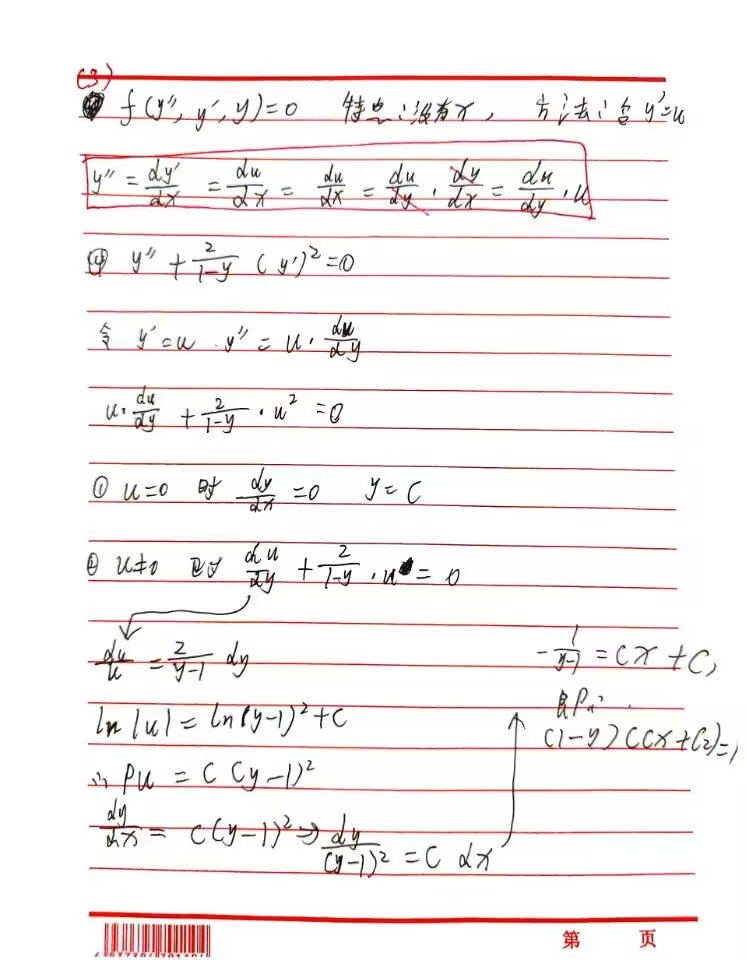 (3)
f(y'', y', y)=0 特点:没有x, 方法:令 y'=u
y'' = dy'/dx = du/dx = du/dx = du/dy · dy/dx = du/dy · u
④ y'' + 2/(1-y) (y')² = 0
令 y'=u · y'' = u · du/dy
u · du/dy + 2/(1-y) · u² = 0
① u=0 时 dy/dx = 0 y = C
② u≠0 时 du/dy + 2/(1-y) · u = 0
du/u = 2/(y-1) dy
ln|u| = ln(y-1)² + C
∴ u = C(y-1)²
dy/dx = C(y-1)² ⇒ dy/(y-1)² = C dx
-1/(y-1) = Cx + C₁
即
(1-y)(Cx+C₂)=1
第 页